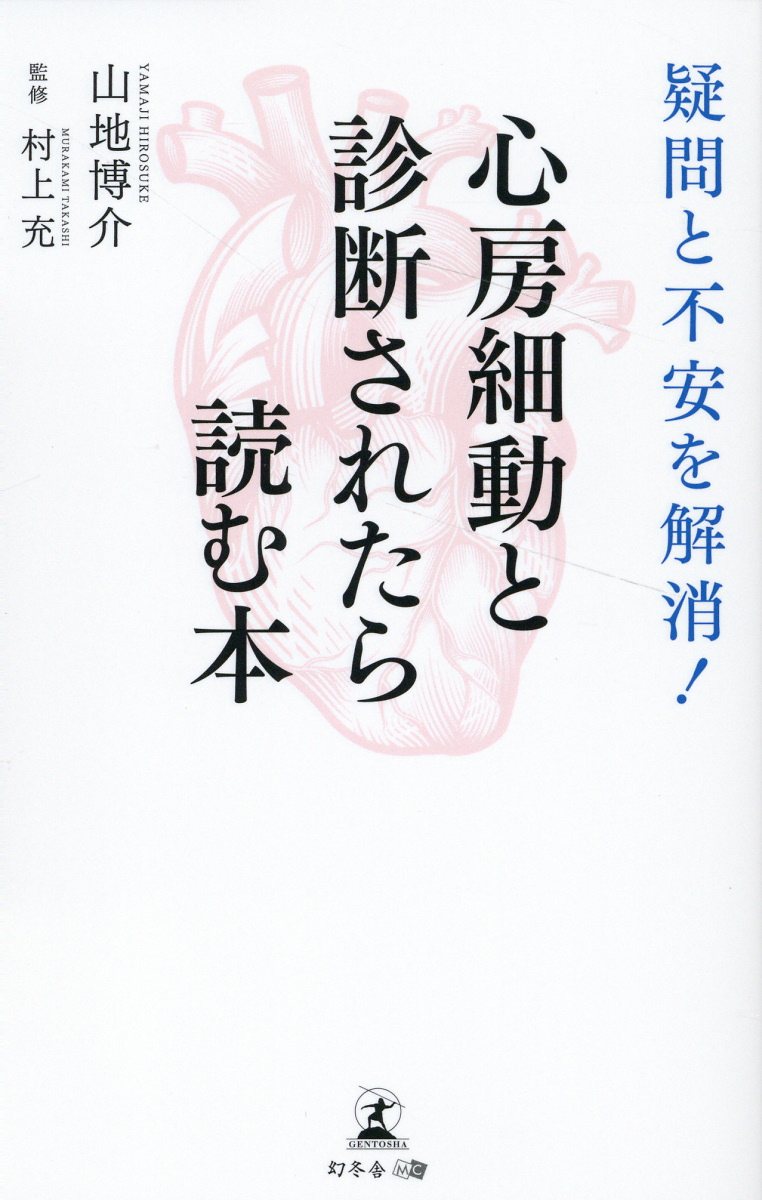 疑問と不安を解消!
心房細動と
診断されたら
読む本
YAMAJI HIROSUKE
山地博介
MURAKAMI TAKASHI
監修 村上充
GENTOSHA
幻冬舎 MC